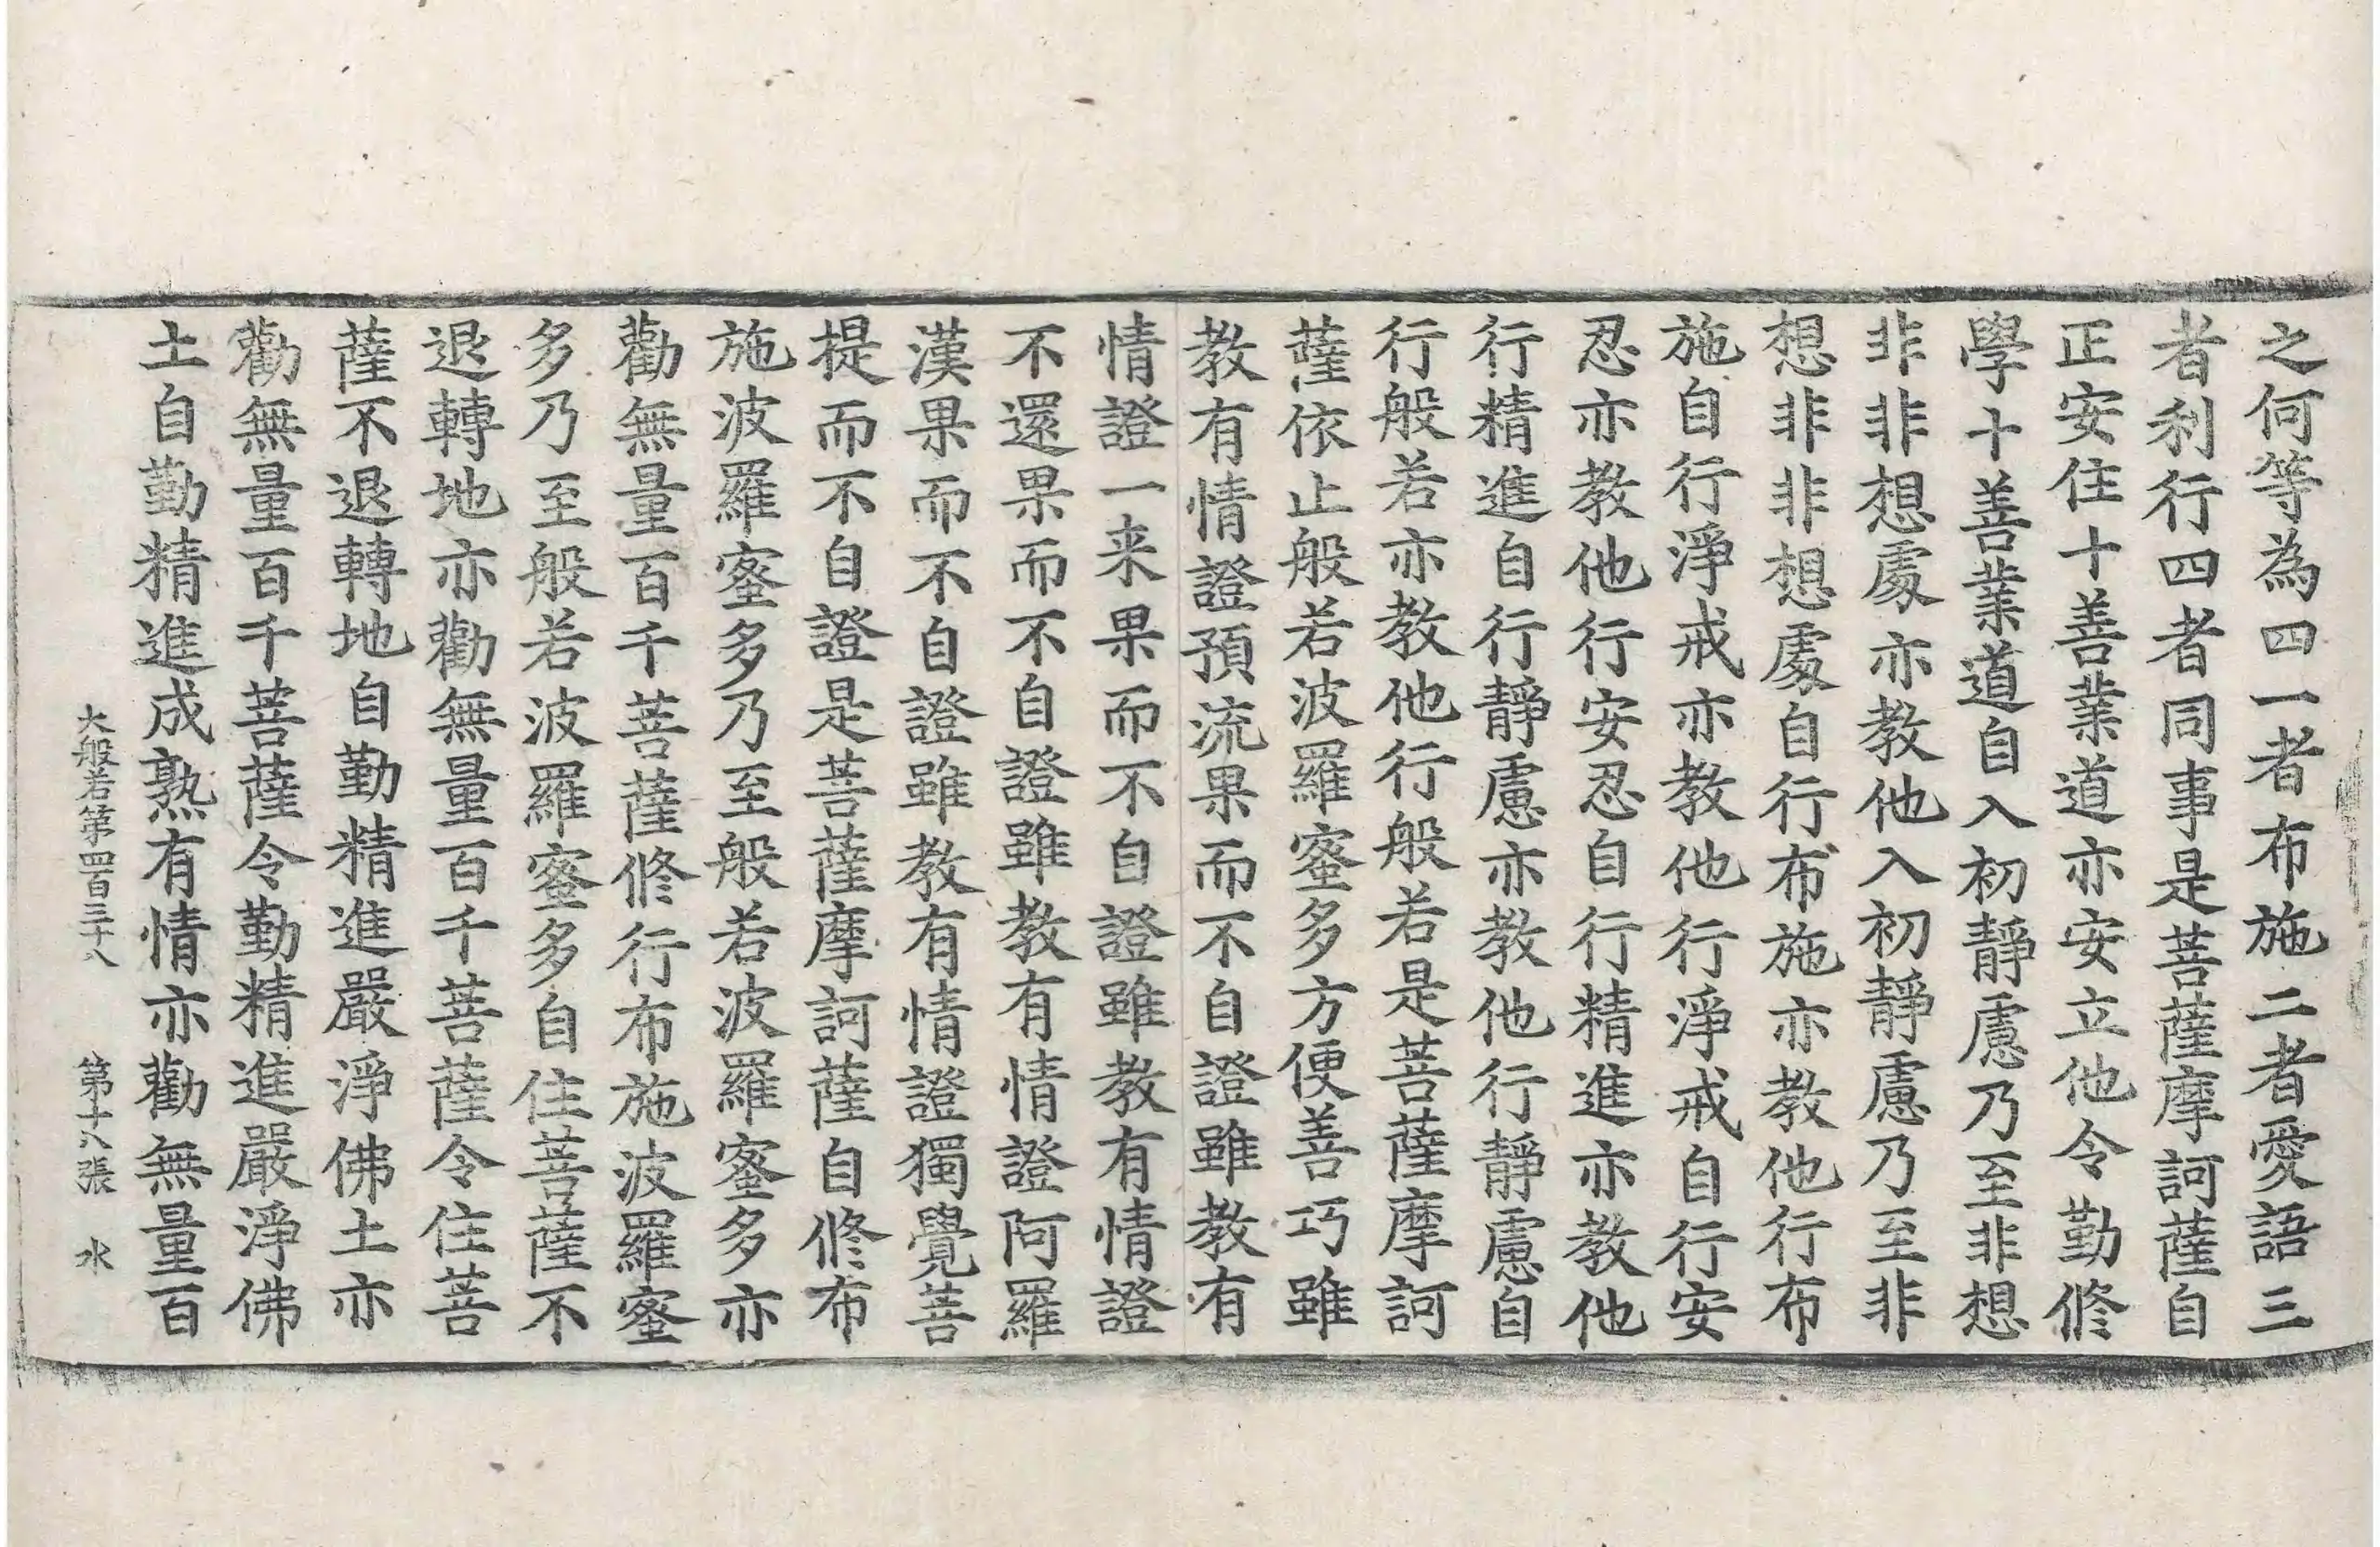 之何等為四一者布施二者愛語三
者利行四者同事是菩薩摩訶薩自
正安住十善業道亦安立他令勤修
學十善業道自入初靜慮乃至非想
非非想處亦教他入初靜慮乃至非
想非非想處自行布施亦教他行布
施自行淨戒亦教他行淨戒自行安
忍亦教他行安忍自行精進亦教他
行精進自行靜慮亦教他行靜慮自
行般若亦教他行般若是菩薩摩訶
薩依止般若波羅蜜多方便善巧雖
教有情證預流果而不自證雖教有
情證一来果而不自證雖教有情證
不還果而不自證雖教有情證阿羅
漢果而不自證雖教有情證獨覺菩
提而不自證是菩薩摩訶薩自修布
施波羅蜜多乃至般若波羅蜜多亦
勸無量百千菩薩修行布施波羅蜜
多乃至般若波羅蜜多自住菩薩不
退轉地亦勸無量百千菩薩令住菩
薩不退轉地自勤精進嚴淨佛土亦
勸無量百千菩薩令勤精進嚴淨佛
土自勤精進成熟有情亦勸無量百
大般若第四百三十八 第十八張 水